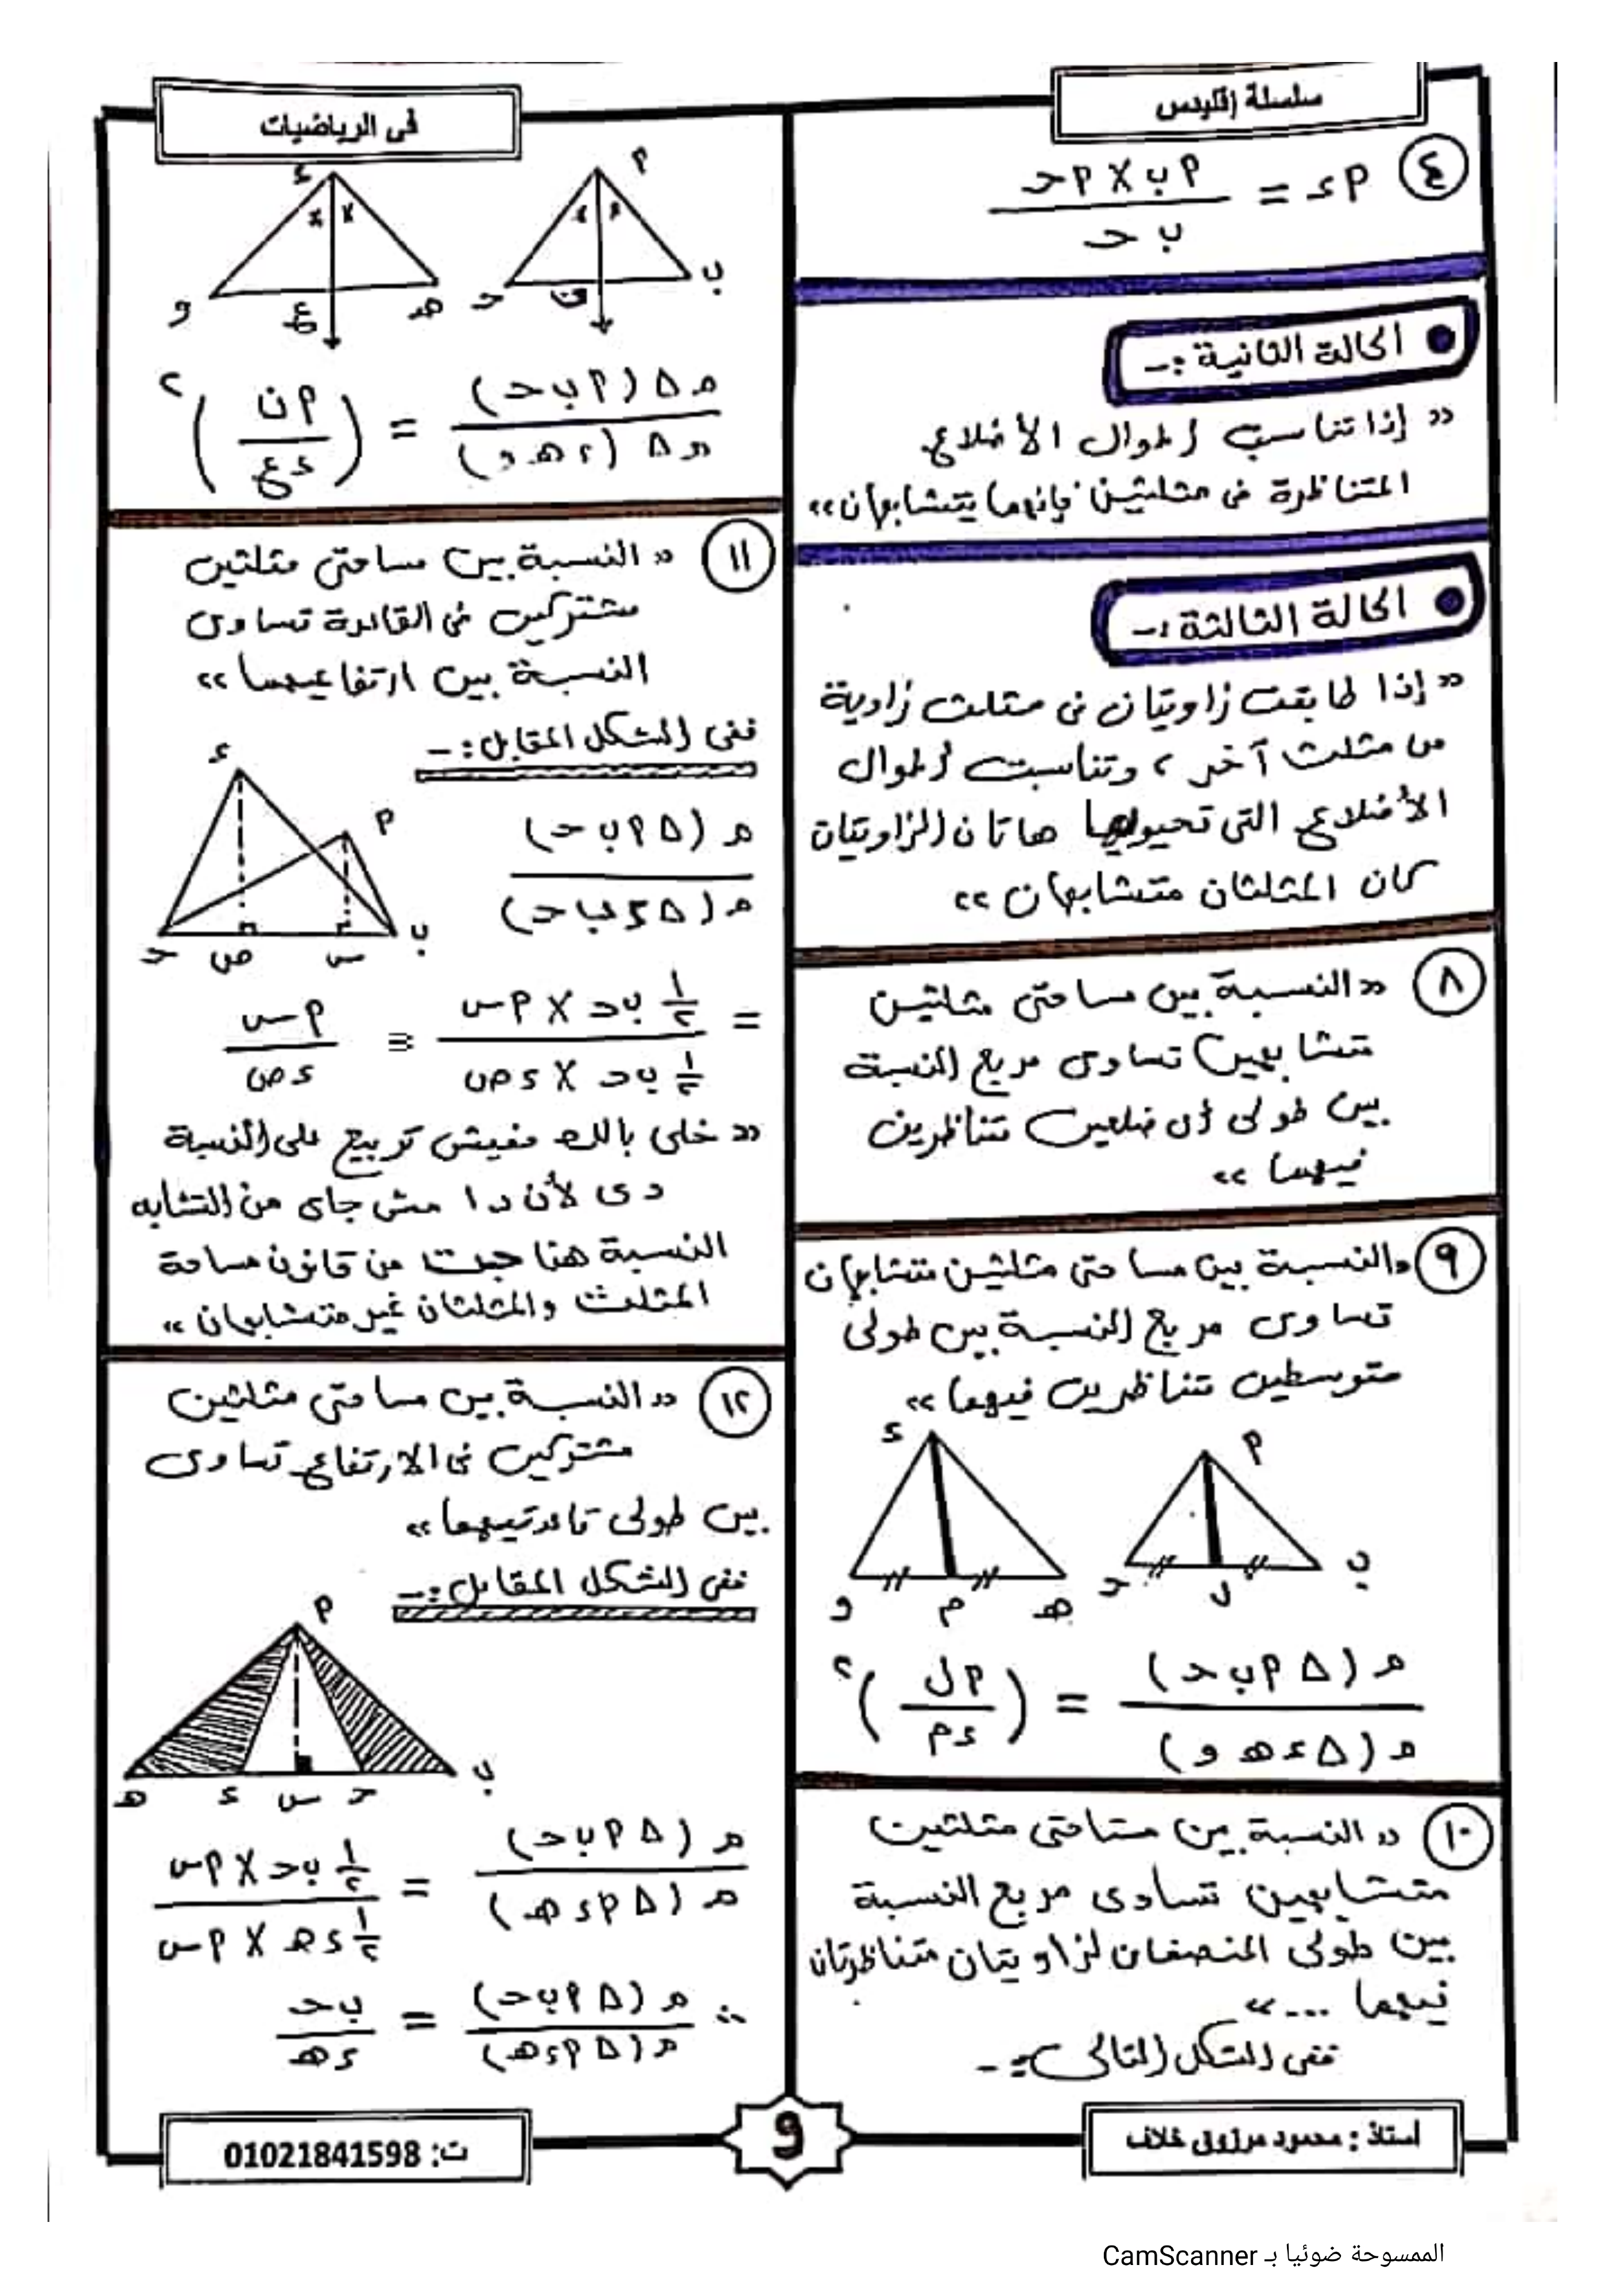 سلسلة إقليدس
فى الرياضيات
٤ ء٢ = ٢ب × ٢حـ / ب حـ
الحالة الثانية :-
« إذا تناسبت أطوال الأضلاع
المتناظرة فى مثلثين فإنهما يتشابهان »
الحالة الثالثة :-
« إذا طابقت زاويتان فى مثلث زاوية
من مثلث آخر ، وتناسبت أطوال
الأضلاع التى تحيولها هاتان الزاويتان
كان المثلثان متشابهان »
٨ « النسبة بين مساحتى مثلثين
متشابهين تساوى مربع النسبة
بين طولى أى ضلعين متناظرين
فيهما »
٩ « النسبة بين مساحتى مثلثين متشابهان
تساوى مربع النسبة بين طولى
متوسطين متناظرين فيهما »
ء م
و م هـ حـ ل ب
م (Δ م ب حـ) / م (Δ ء هـ و) = (م ل / ء م)٢
١٠ « النسبة بين مساحتى مثلثين
متشابهين تساوى مربع النسبة
بين طولى المنصفان لزاويتان متناظرتان
فيهما ... »
ففى الشكل التالى :-
ء م
و ع هـ حـ ن ب
م Δ (م ب حـ) / م Δ (ء هـ و) = (م ن / ء ع)٢
١١ « النسبة بين مساحتى مثلثين
مشتركين فى القاعدة تساوى
النسبة بين ارتفاعيهما »
ففى الشكل المقابل :-
ء م
حـ ص س ب
م (Δ م ب حـ) / م (Δ ء ب حـ)
= ½ ب حـ × م س / ½ ب حـ × ء ص = م س / ء ص
« خلى بالك مفيش تربيع على النسبة
دى لأن دا مش جاى من التشابه
النسبة هنا جت من قانون مساحة
المثلث والمثلثان غير متشابهان »
١٢ « النسبة بين مساحتى مثلثين
مشتركين فى الارتفاع تساوى
بين طولى قاعدتيهما »
ففى الشكل المقابل :-
م
هـ ء س حـ ب
م (Δ م ب حـ) / م (Δ م ء هـ) = ½ ب حـ × م س / ½ ء هـ × م س
∴ م (Δ م ب حـ) / م (Δ م ء هـ) = ب حـ / ء هـ
أستاذ : محمود مرزوق خلاف
9
ت: 01021841598
الممسوحة ضوئيا بـ CamScanner